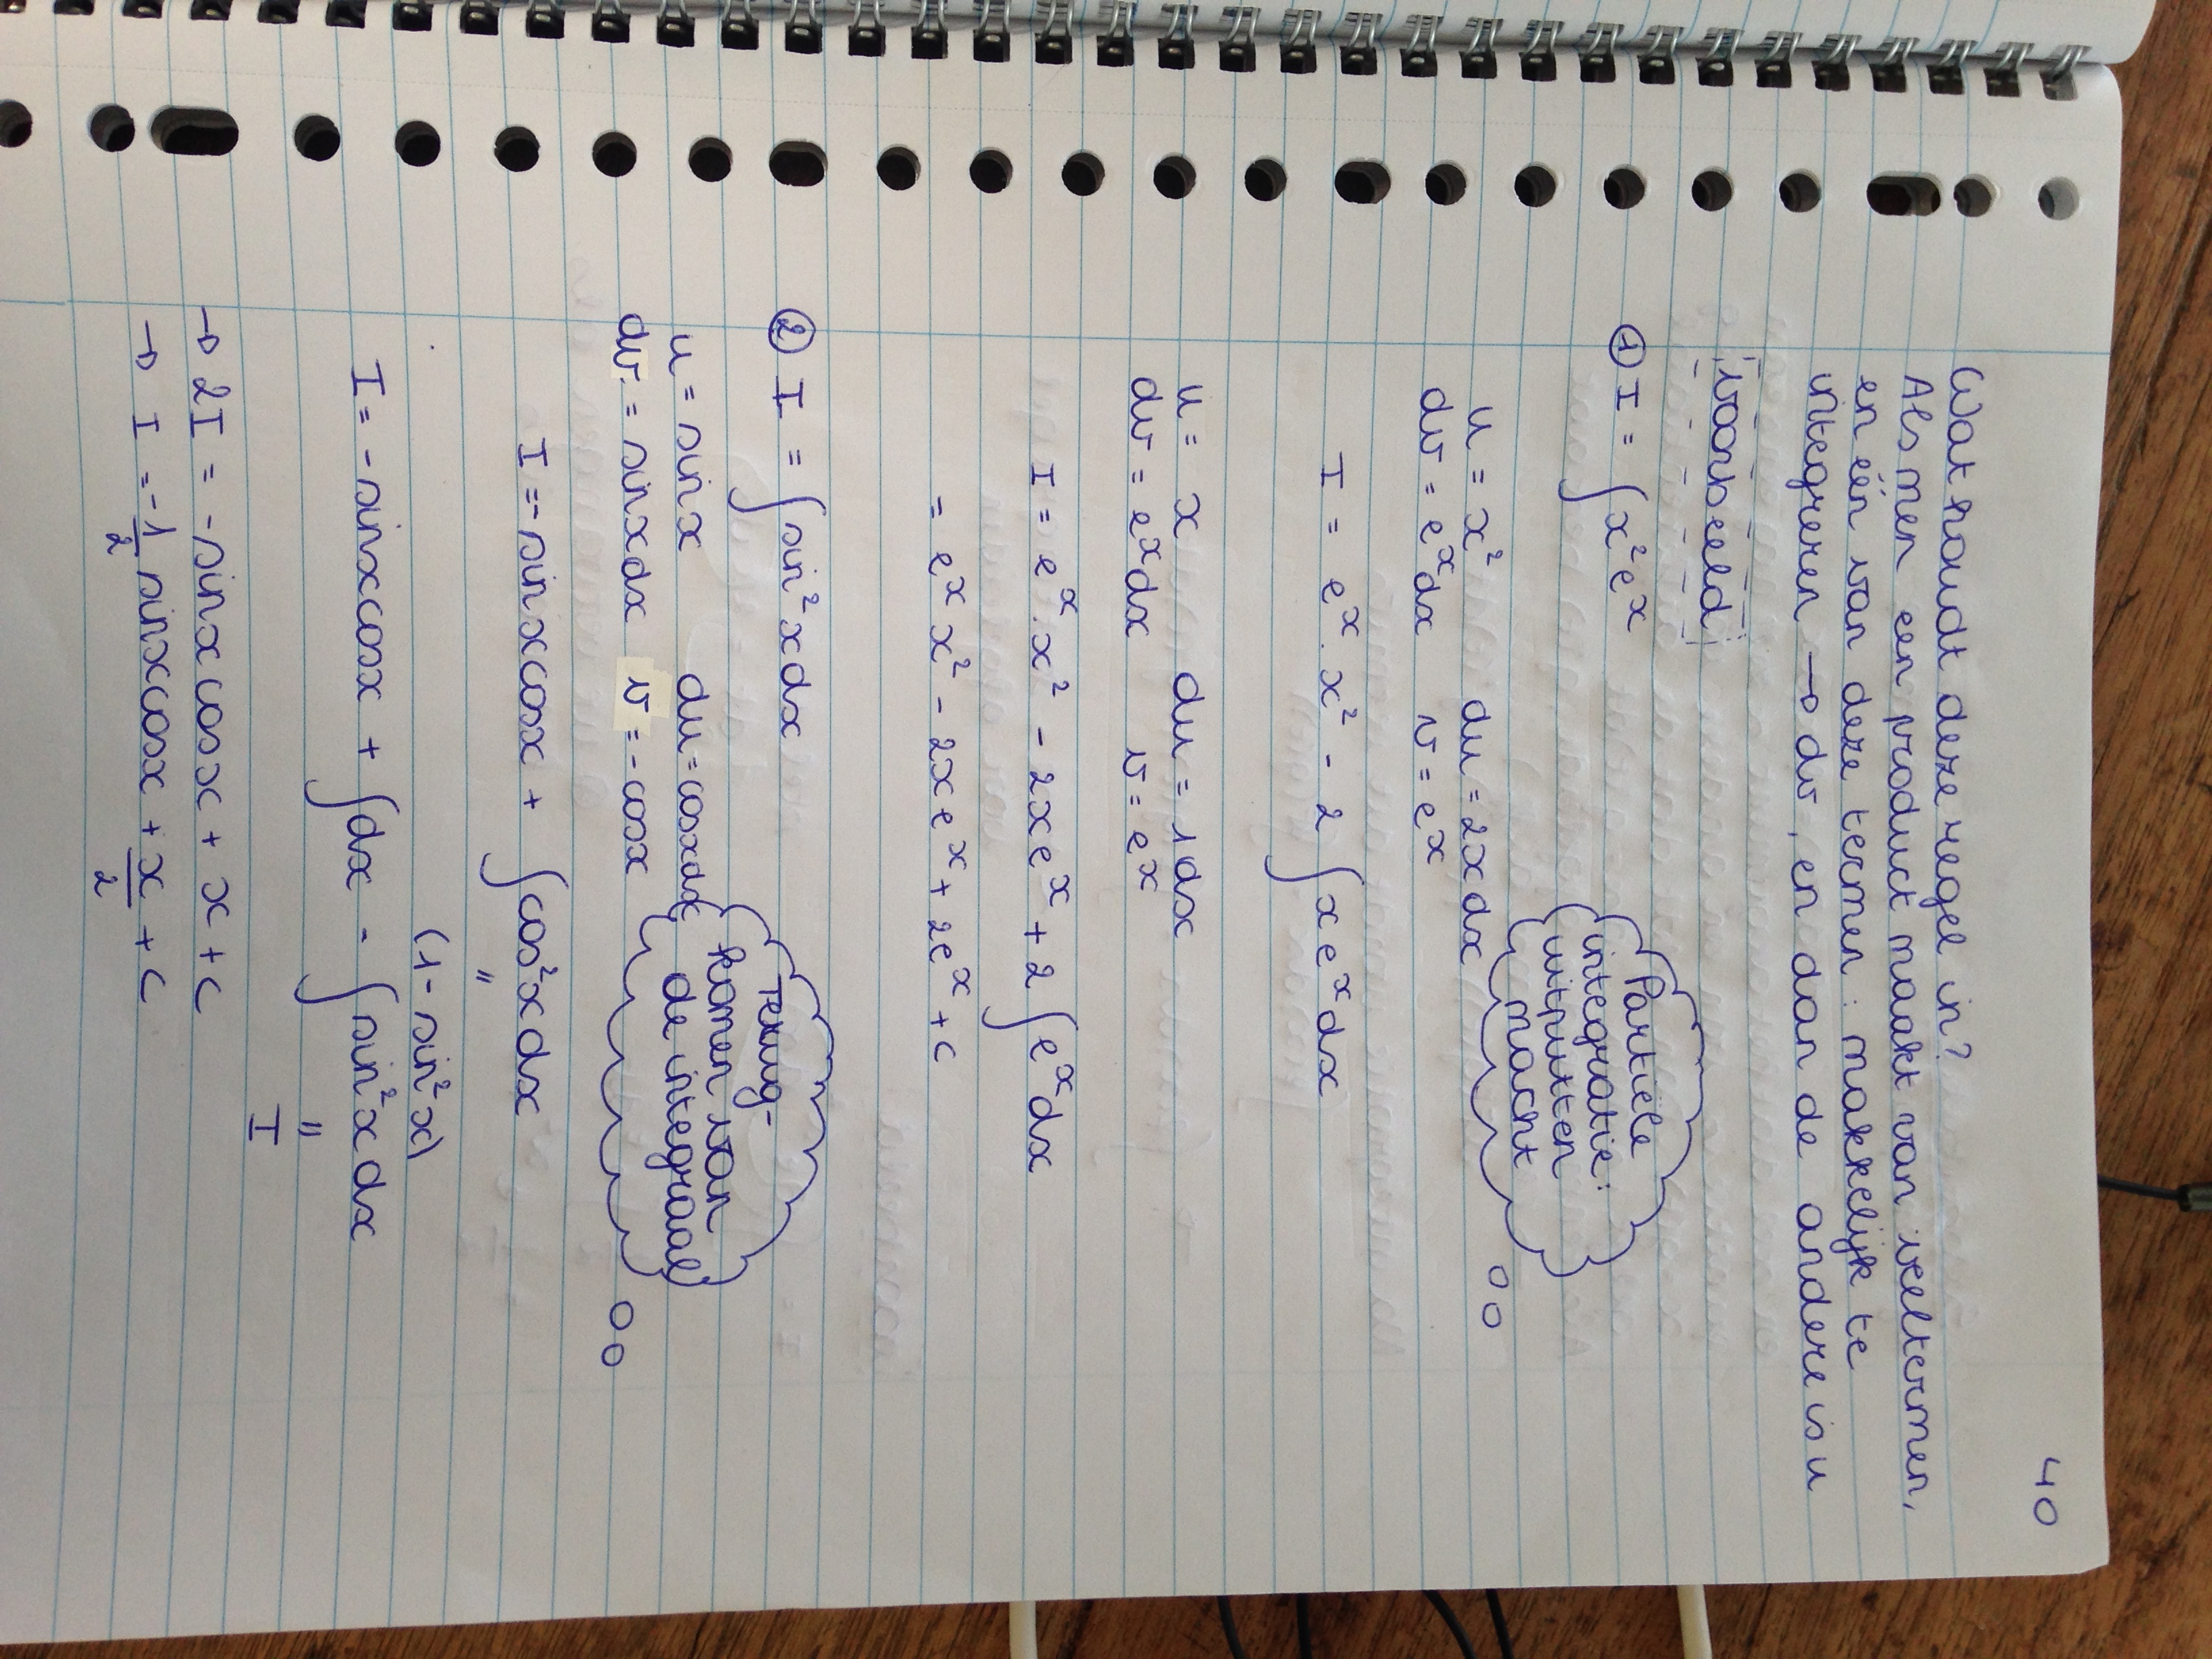 40
Wat houdt deze regel in?
Als men een product maakt van veeltermen,
en één van deze termen : makkelijk te
integreren → dv, en dan de andere is u
voorbeeld
① I = ∫ x² eˣ
Partiële
integratie:
uitputten
macht
u = x² du = 2x dx
dv = eˣ dx v = eˣ
I = eˣ . x² - 2 ∫ x eˣ dx
u = x du = 1 dx
dv = eˣ dx v = eˣ
I = eˣ . x² - 2x eˣ + 2 ∫ eˣ dx
= eˣ x² - 2x eˣ + 2eˣ + c
② I = ∫ sin² x dx
Terug-
komen van
de integraal
u = sin x du = cos x dx
dv = sin x dx v = - cos x
I = - sin x cos x + ∫ cos² x dx
"
(1 - sin² x)
I = - sin x cos x + ∫ dx - ∫ sin² x dx
"
I
→ 2I = - sin x cos x + x + c
→ I = -1/2 sin x cos x + x/2 + c